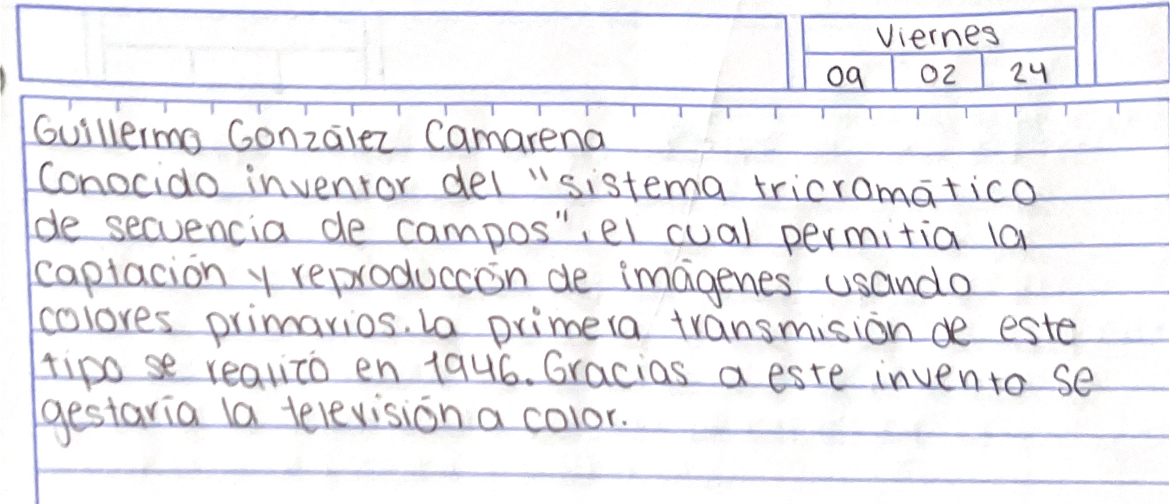 Viernes
09 02 24
Guillermo González Camarena
Conocido inventor del "sistema tricromático
de secuencia de campos", el cual permitía la
captación y reproduccón de imágenes usando
colores primarios. La primera transmisión de este
tipo se realizó en 1946. Gracias a este invento se
gestaría la televisión a color.